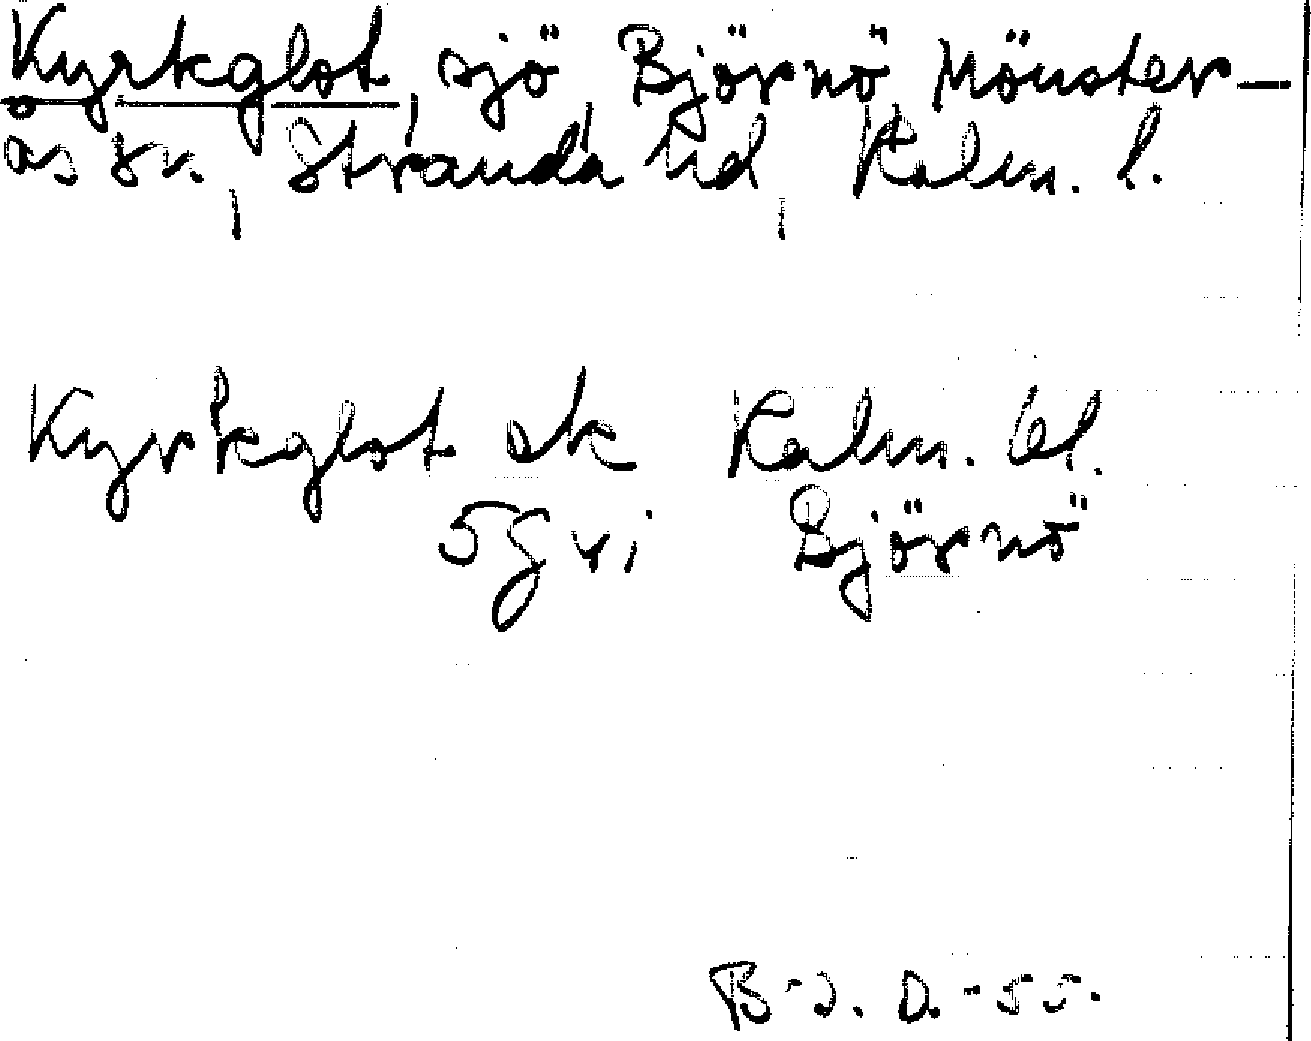 Kyrkglot, sjö, Björnö, Mönster-
ås sn, Stranda hd, Kalm. l.
Kyrkglot ek Kalm. bl.
5g vi Björnö
B-J. D. -55.